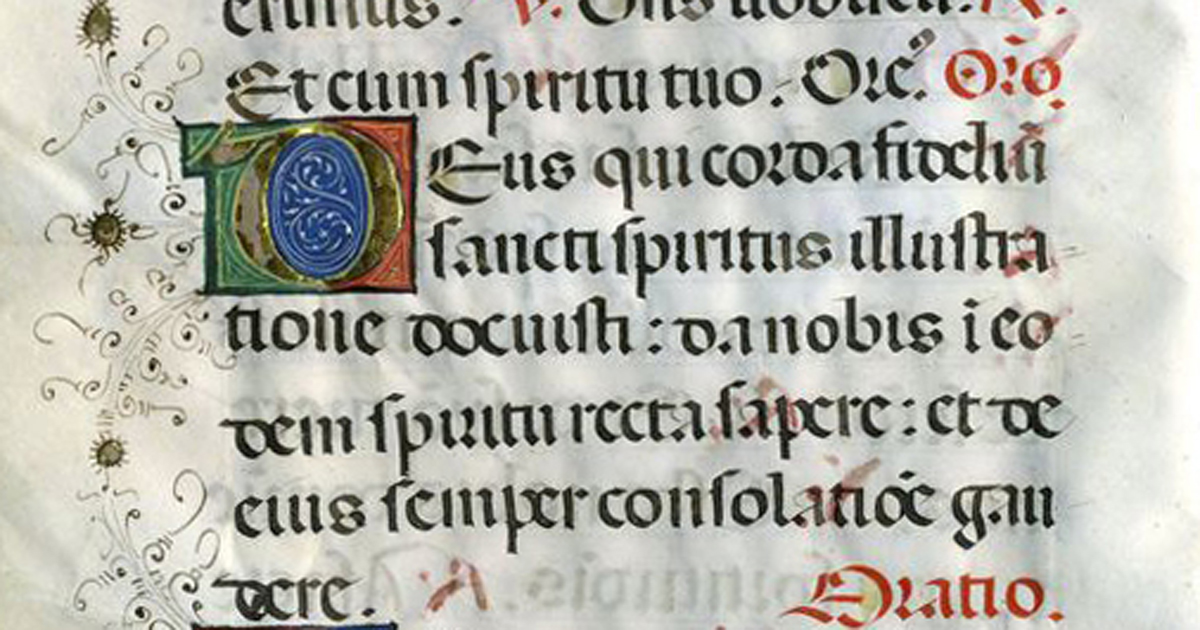 ctimus. V. Dñs uobiscũ. R.
Et cum spiritu tuo. Orẽ. Orõ.
DEus qui corda fideliũ
sancti spiritus illustra
tione docuisti: da nobis i eo
dem spiritu recta sapere: et de
eius semper consolatiõe gau
dere. Oratio.